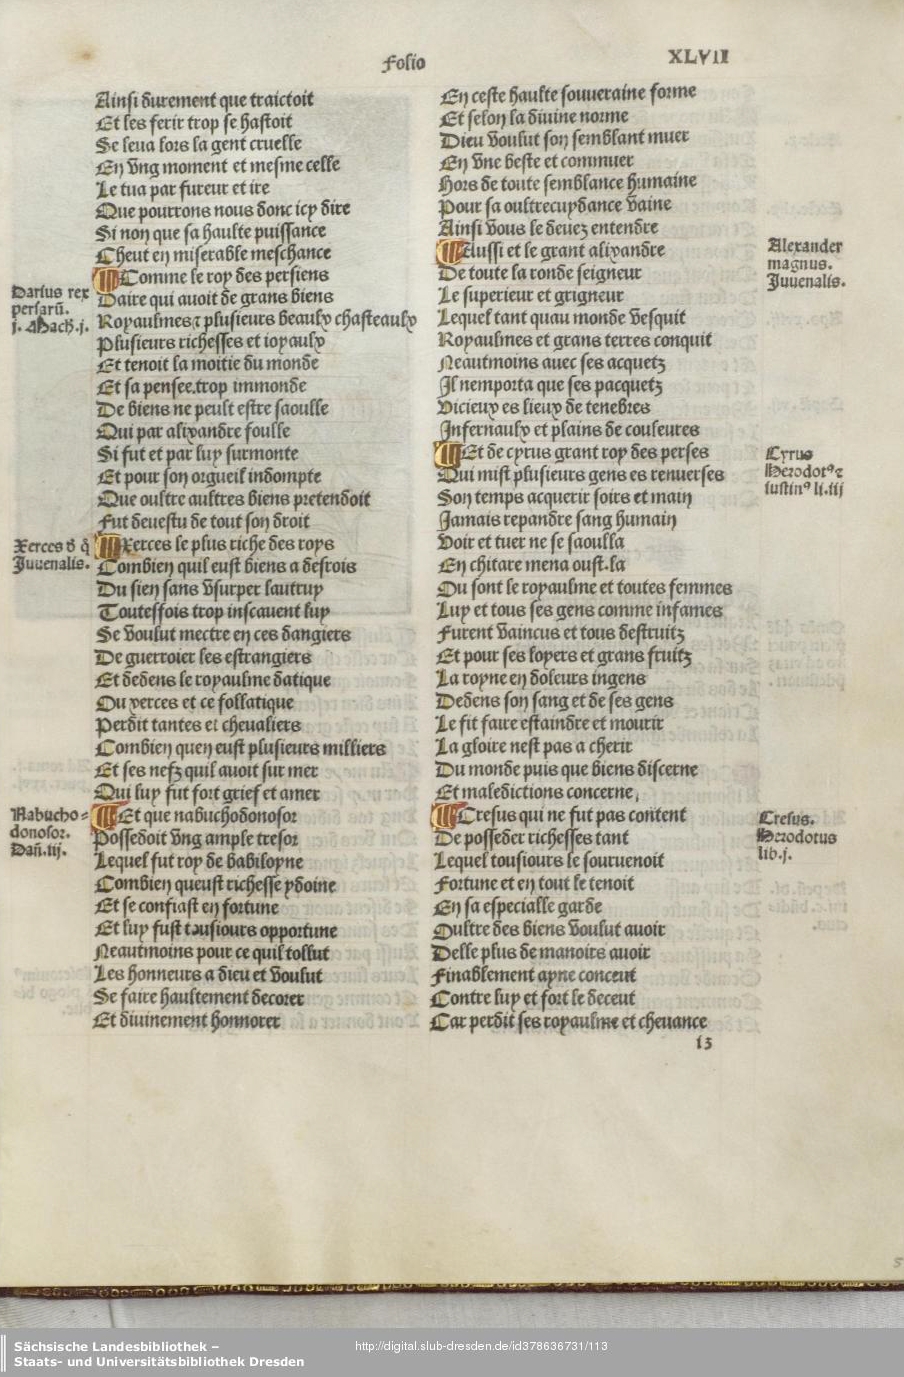 Folio
XLVII
Ainsi durement que traictoit
Et les ferir trop se hastoit
Se leua lors la gent cruelle
En vng moment et mesme celle
Le tua par fureur et ire
Que pourrons nous donc icy dire
Si non que sa haulte puissance
Cheut en miserable meschance
Comme le roy des persiens
Daire qui auoit de grans biens
Royaulmes ⁊ plusieurs beaulx chasteaulx
Plusieurs richesses et ioyaulx
Et tenoit la moitie du monde
Et sa pensee.trop immonde
De biens ne peult estre saoulle
Qui par alixandre foulle
Si fut et par luy surmonte
Et pour son orgueil indompte
Que oultre aultres biens pretendoit
Fut deuestu de tout son droit
Xerces le plus riche des roys
Combien quil eust biens a desrois
Du sien sans vsurper lautruy
Toutesfois trop inscauent luy
Se voulut mectre en ces dangiers
De guerroier les estrangiers
Et dedens le royaulme datique
Ou xerces et ce follatique
Perdit tantes et cheualiers
Combien quen eust plusieurs milliers
Et ses nefz quil auoit sur mer
Qui luy fut fort grief et amer
Et que nabuchodonosor
Possedoit vng ample tresor
Lequel fut roy de babiloyne
Combien queust richesse ydoine
Et se confiast en fortune
Et luy fust tousiours opportune
Neautmoins pour ce quil tollut
Les honneurs a dieu et voulut
Se faire haultement decorer
Et diuinement honnorer
Darius rex
persarū.
j. Mach.j.
Xerces d q̄
Juuenalis.
Nabucho=
donosor.
Dañ.iij.
En ceste haulte souueraine forme
Et selon la diuine norme
Dieu voulut son semblant muer
En vne beste et commuer
Hors de toute semblance humaine
Pour sa oultrecuydance vaine
Ainsi vous le deuez entendre
Aussi et le grant alixandre
De toute la ronde seigneur
Le superieur et grigneur
Lequel tant quau monde vesquit
Royaulmes et grans terres conquit
Neautmoins auec ses acquetz
Il nemporta que ses pacquetz
Vicieux es lieux de tenebres
Infernaulx et plains de couleures
Et de cyrus grant roy des perses
Qui mist plusieurs gens es renuerses
Son temps acquerir soirs et main
Jamais repandre sang humain
Voir et tuer ne se saoulla
En chitare mena oust.la
Ou sont le royaulme et toutes femmes
Luy et tous ses gens comme infames
Furent vaincus et tous destruitz
Et pour ses loyers et grans fruitz
La royne en doleurs ingens
Dedens son sang et de ses gens
Le fit faire estaindre et mourir
La gloire nest pas a cherir
Du monde puis que biens discerne
Et maledictions concerne,
Cresus qui ne fut pas content
De posseder richesses tant
Lequel tousiours le souruenoit
Fortune et en tout le tenoit
En sa especialle garde
Oultre des biens voulut auoir
Delle plus de manoirs auoir
Finablement ayne conceut
Contre luy et fort le deceut
Car perdit ses royaulme et cheuance
Alexander
magnus.
Juuenalis.
Cyrus
Herodotꝰ ⁊
iustinꝰ li.iij
Cresus.
Herodotus
lib.j.
i3
Sächsische Landesbibliothek –
Staats- und Universitätsbibliothek Dresden
http://digital.slub-dresden.de/id378636731/113